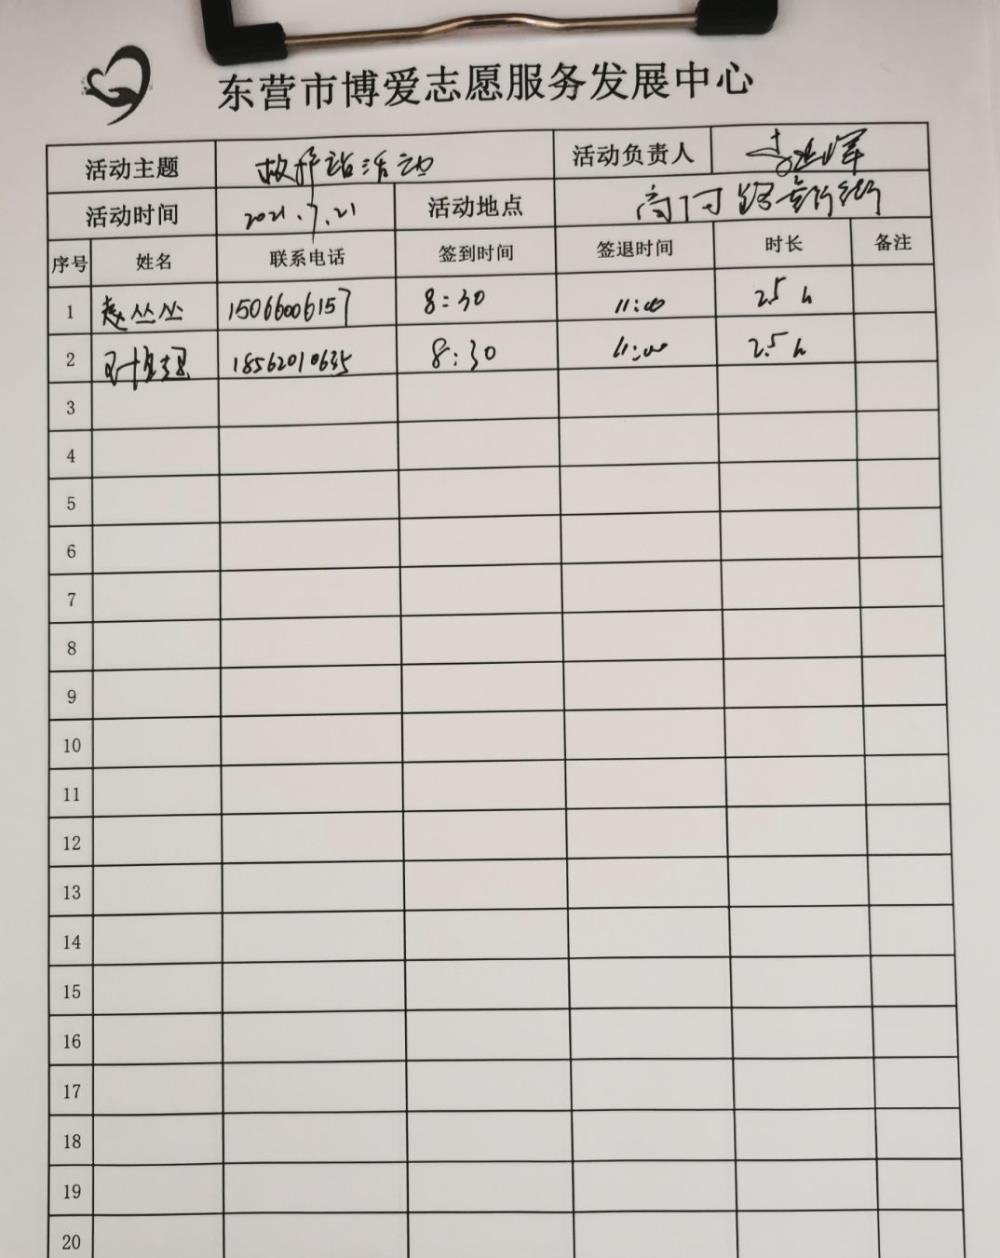 东营市博爱志愿服务发展中心
活动主题 救护站活动 活动负责人
活动时间 2021.7.21 活动地点
序号 姓名 联系电话 签到时间 签退时间 时长 备注
1 赵丛丛 15066006157 8:30 11:00 2.5h
2 18562010635 8:30 11:00 2.5h
3
4
5
6
7
8
9
10
11
12
13
14
15
16
17
18
19
20